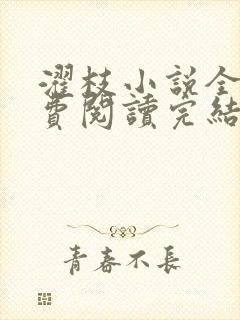 濯枝小說全
費閱讀完結
青春不長